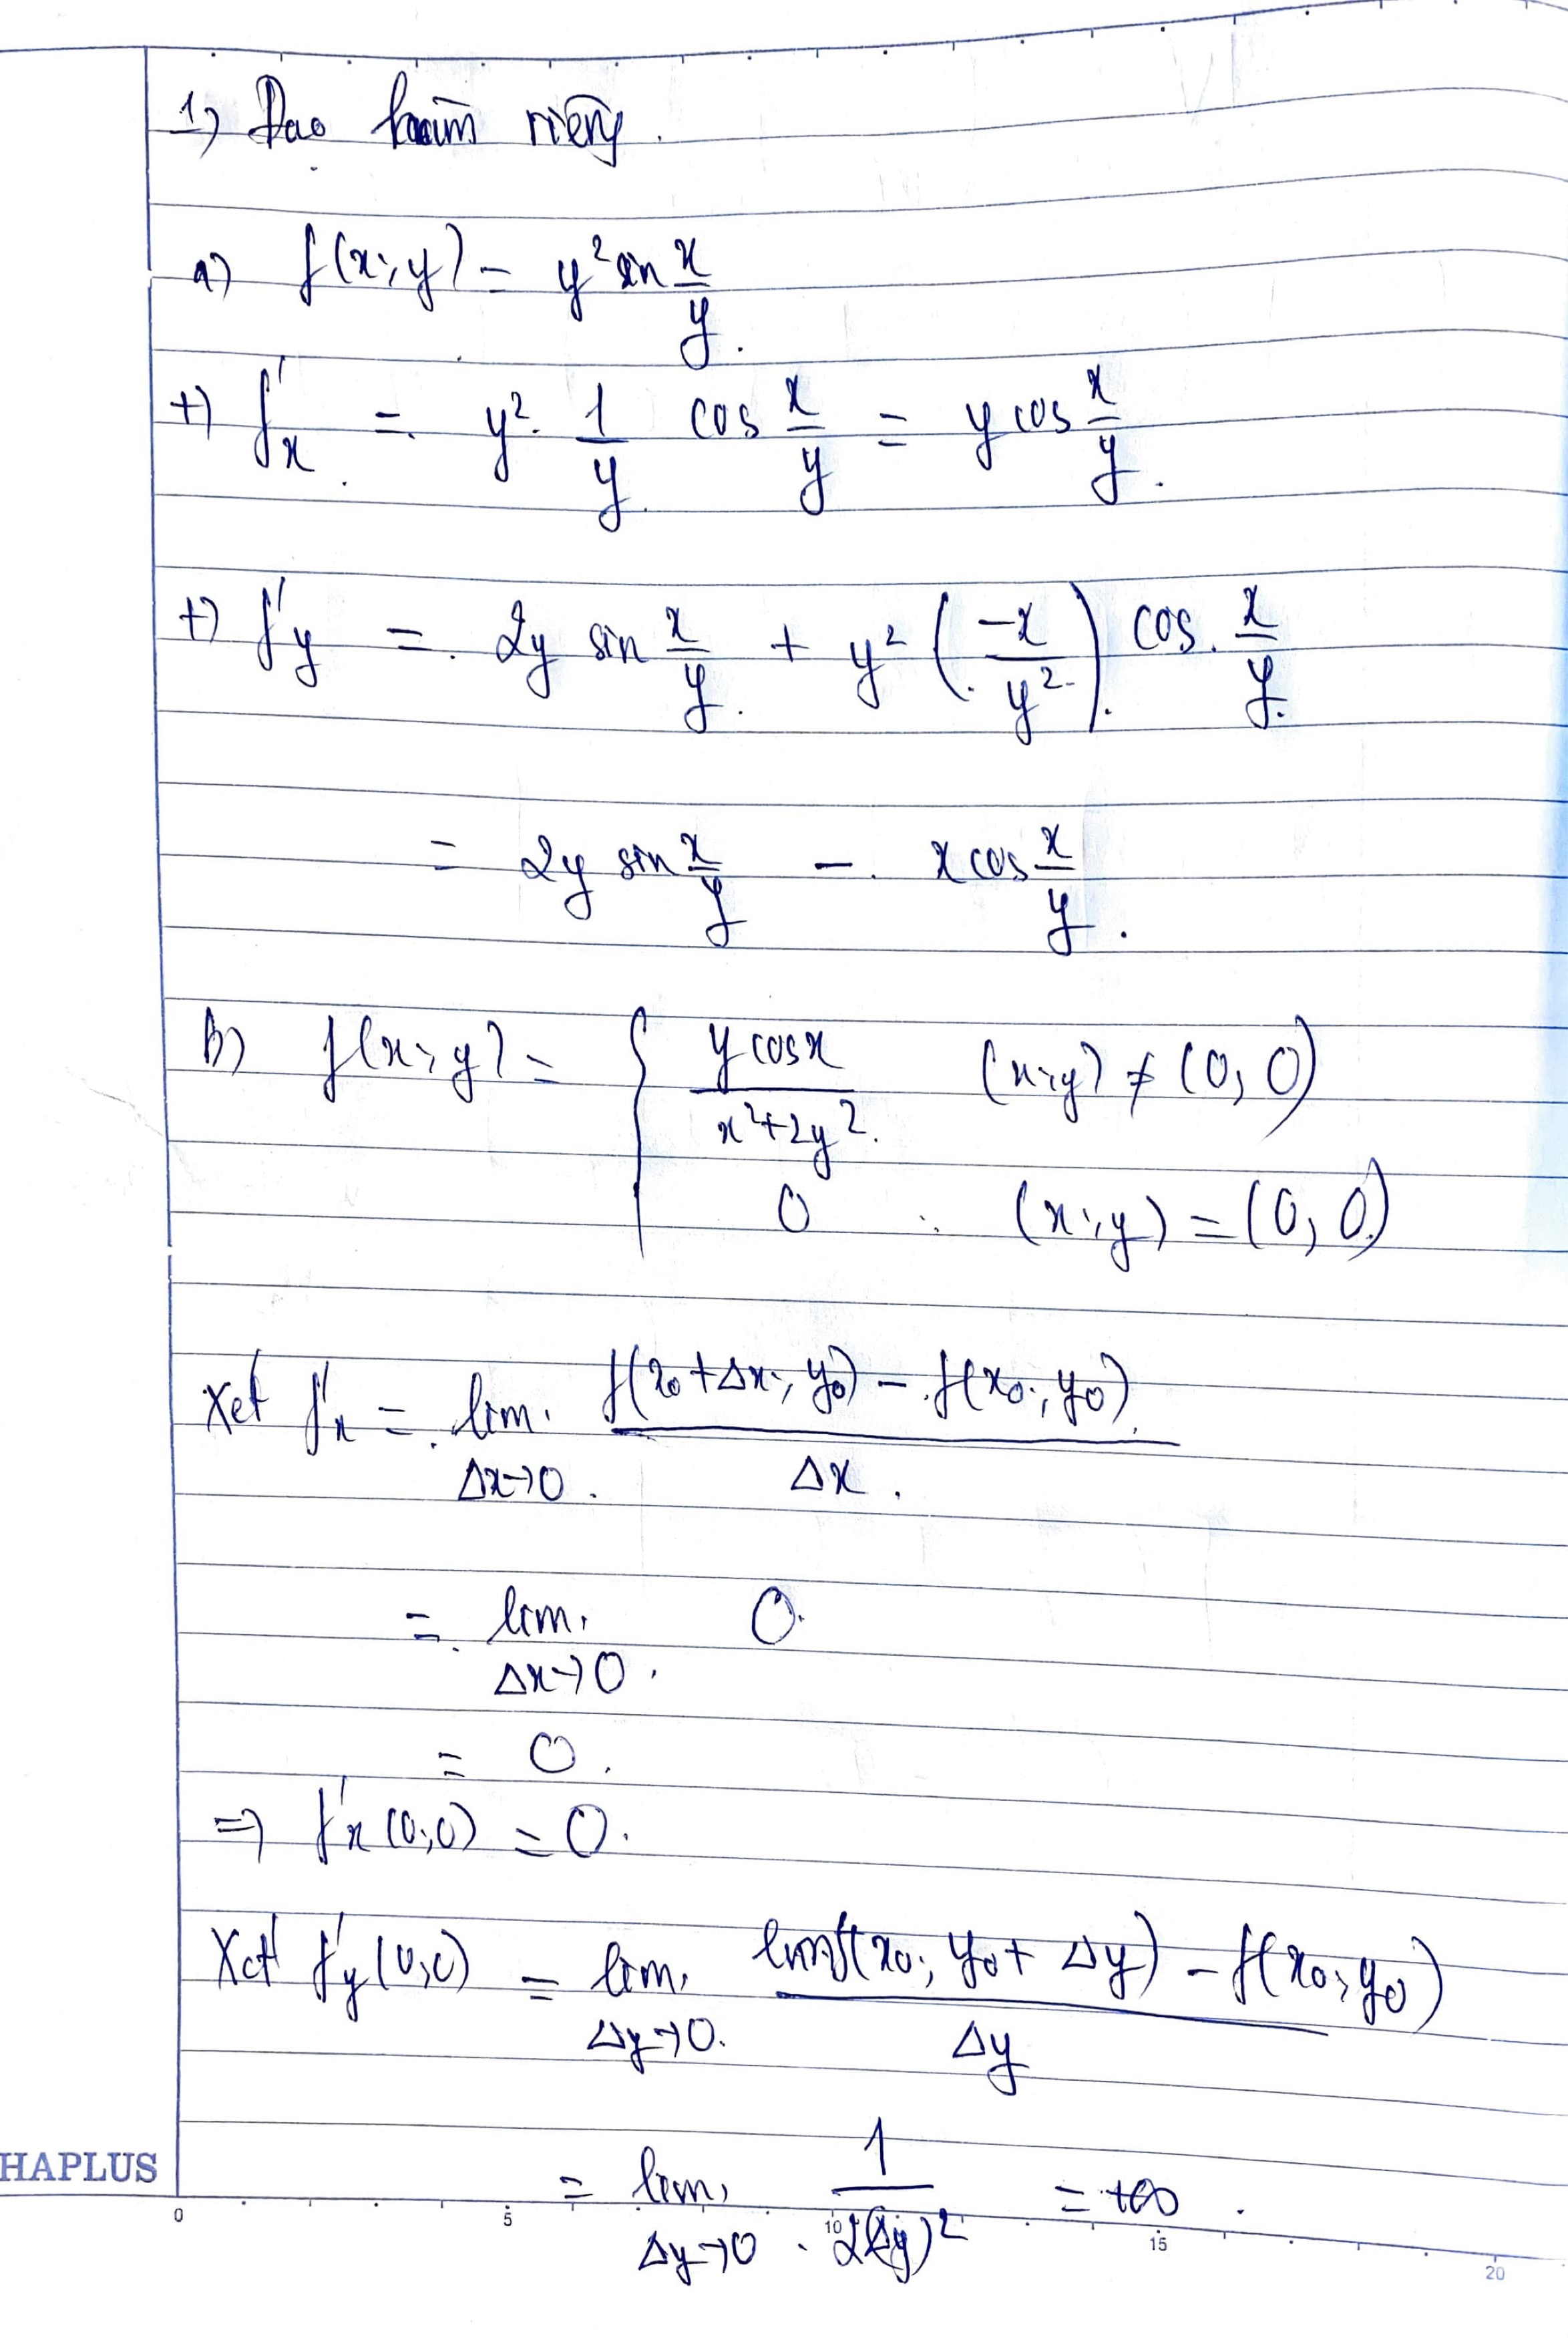 1) Đạo hàm riêng.
a) f(x;y) = y² sin x/y.
+) f'x = y². 1/y cos x/y = y cos x/y.
+) f'y = 2y sin x/y + y² (-x/y²). cos. x/y.
= 2y sin x/y - x cos x/y.
b) f(x;y) = { y cosx / x²+2y². (x;y) ≠ (0;0)
0 (x;y) = (0;0)
Xét f'x = lim Δx→0. f(x₀+Δx; y₀) - f(x₀; y₀) / Δx.
= lim Δx→0. 0.
= 0.
⇒ f'x (0;0) = 0.
Xét f'y (0;0) = lim Δy→0. lim f(x₀; y₀+Δy) - f(x₀; y₀) / Δy
= lim Δy→0. 1 / 2(Δy)² = +∞.
HAPLUS
0 5 10 15 20